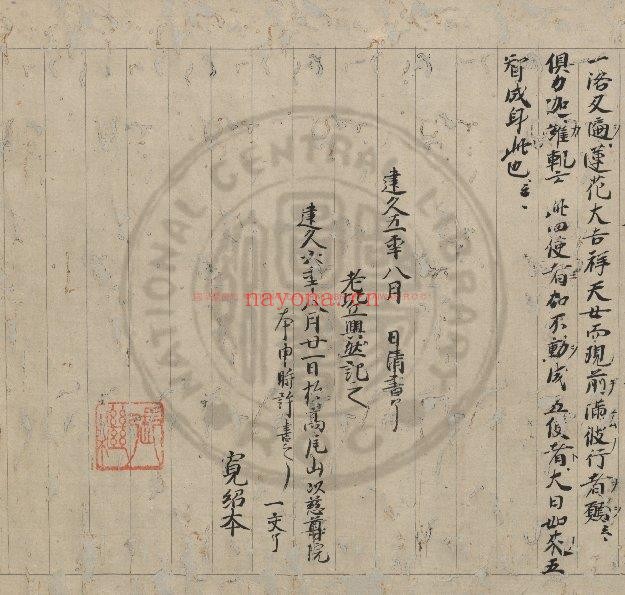 一洛叉遍蓮花大吉祥天女而現前滿彼行者願云々
俱力迦羅軌云此四使者加不動成五使者大日如來五
智成身此也云々
建久五年八月 日清書了
老比丘興然記之
建久六年八月廿一日於高尾山以慈尊院
本申時許書之了
一交了
寬紹本
NATIONAL CENTRAL LIBRARY
nayona.cn